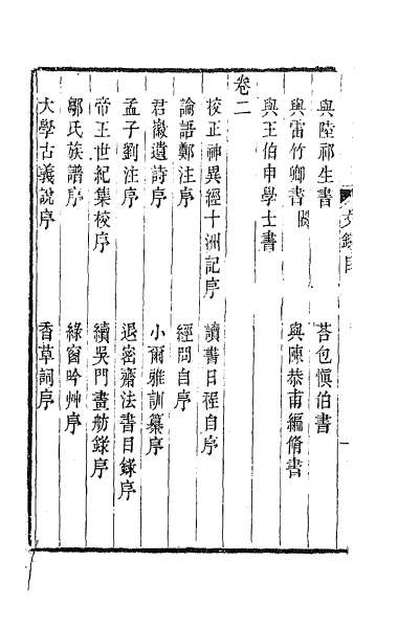 文錄目
與陸祁生書
荅包愼伯書
與雷竹卿書
與陳恭甫編脩書
與王伯申學士書
卷二
校正神異經十洲記序
讀書日程自序
論語鄭注序
經問自序
君徽遺詩序
小爾雅訓纂序
孟子劉注序
退密齋法書目錄序
帝王世紀集校序
續吳門畫舫錄序
鄔氏族譜序
綠窗吟艸序
大學古義說序
香草詞序